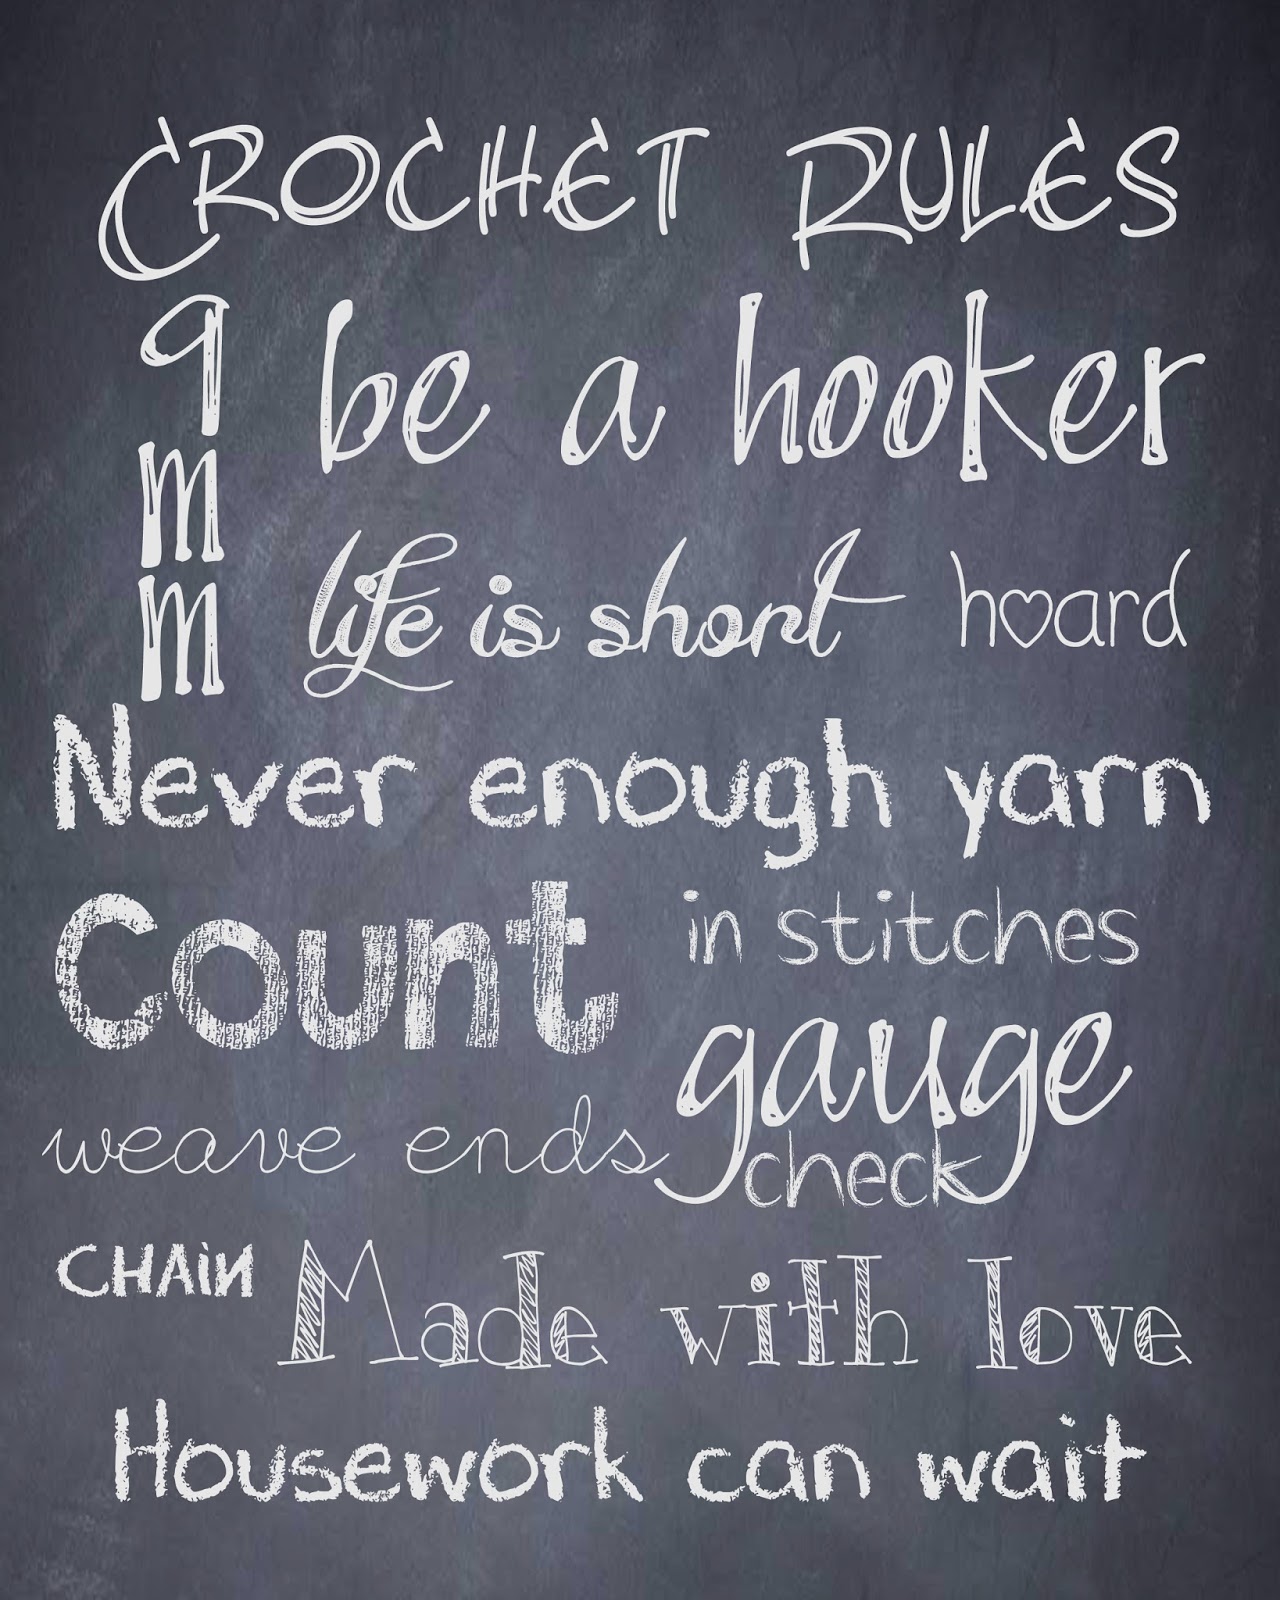 Crochet Rules
9mm
be a hooker
life is short
hoard
Never enough yarn
Count
in stitches
gauge
check
weave ends
CHAiN
Made with love
Housework can wait